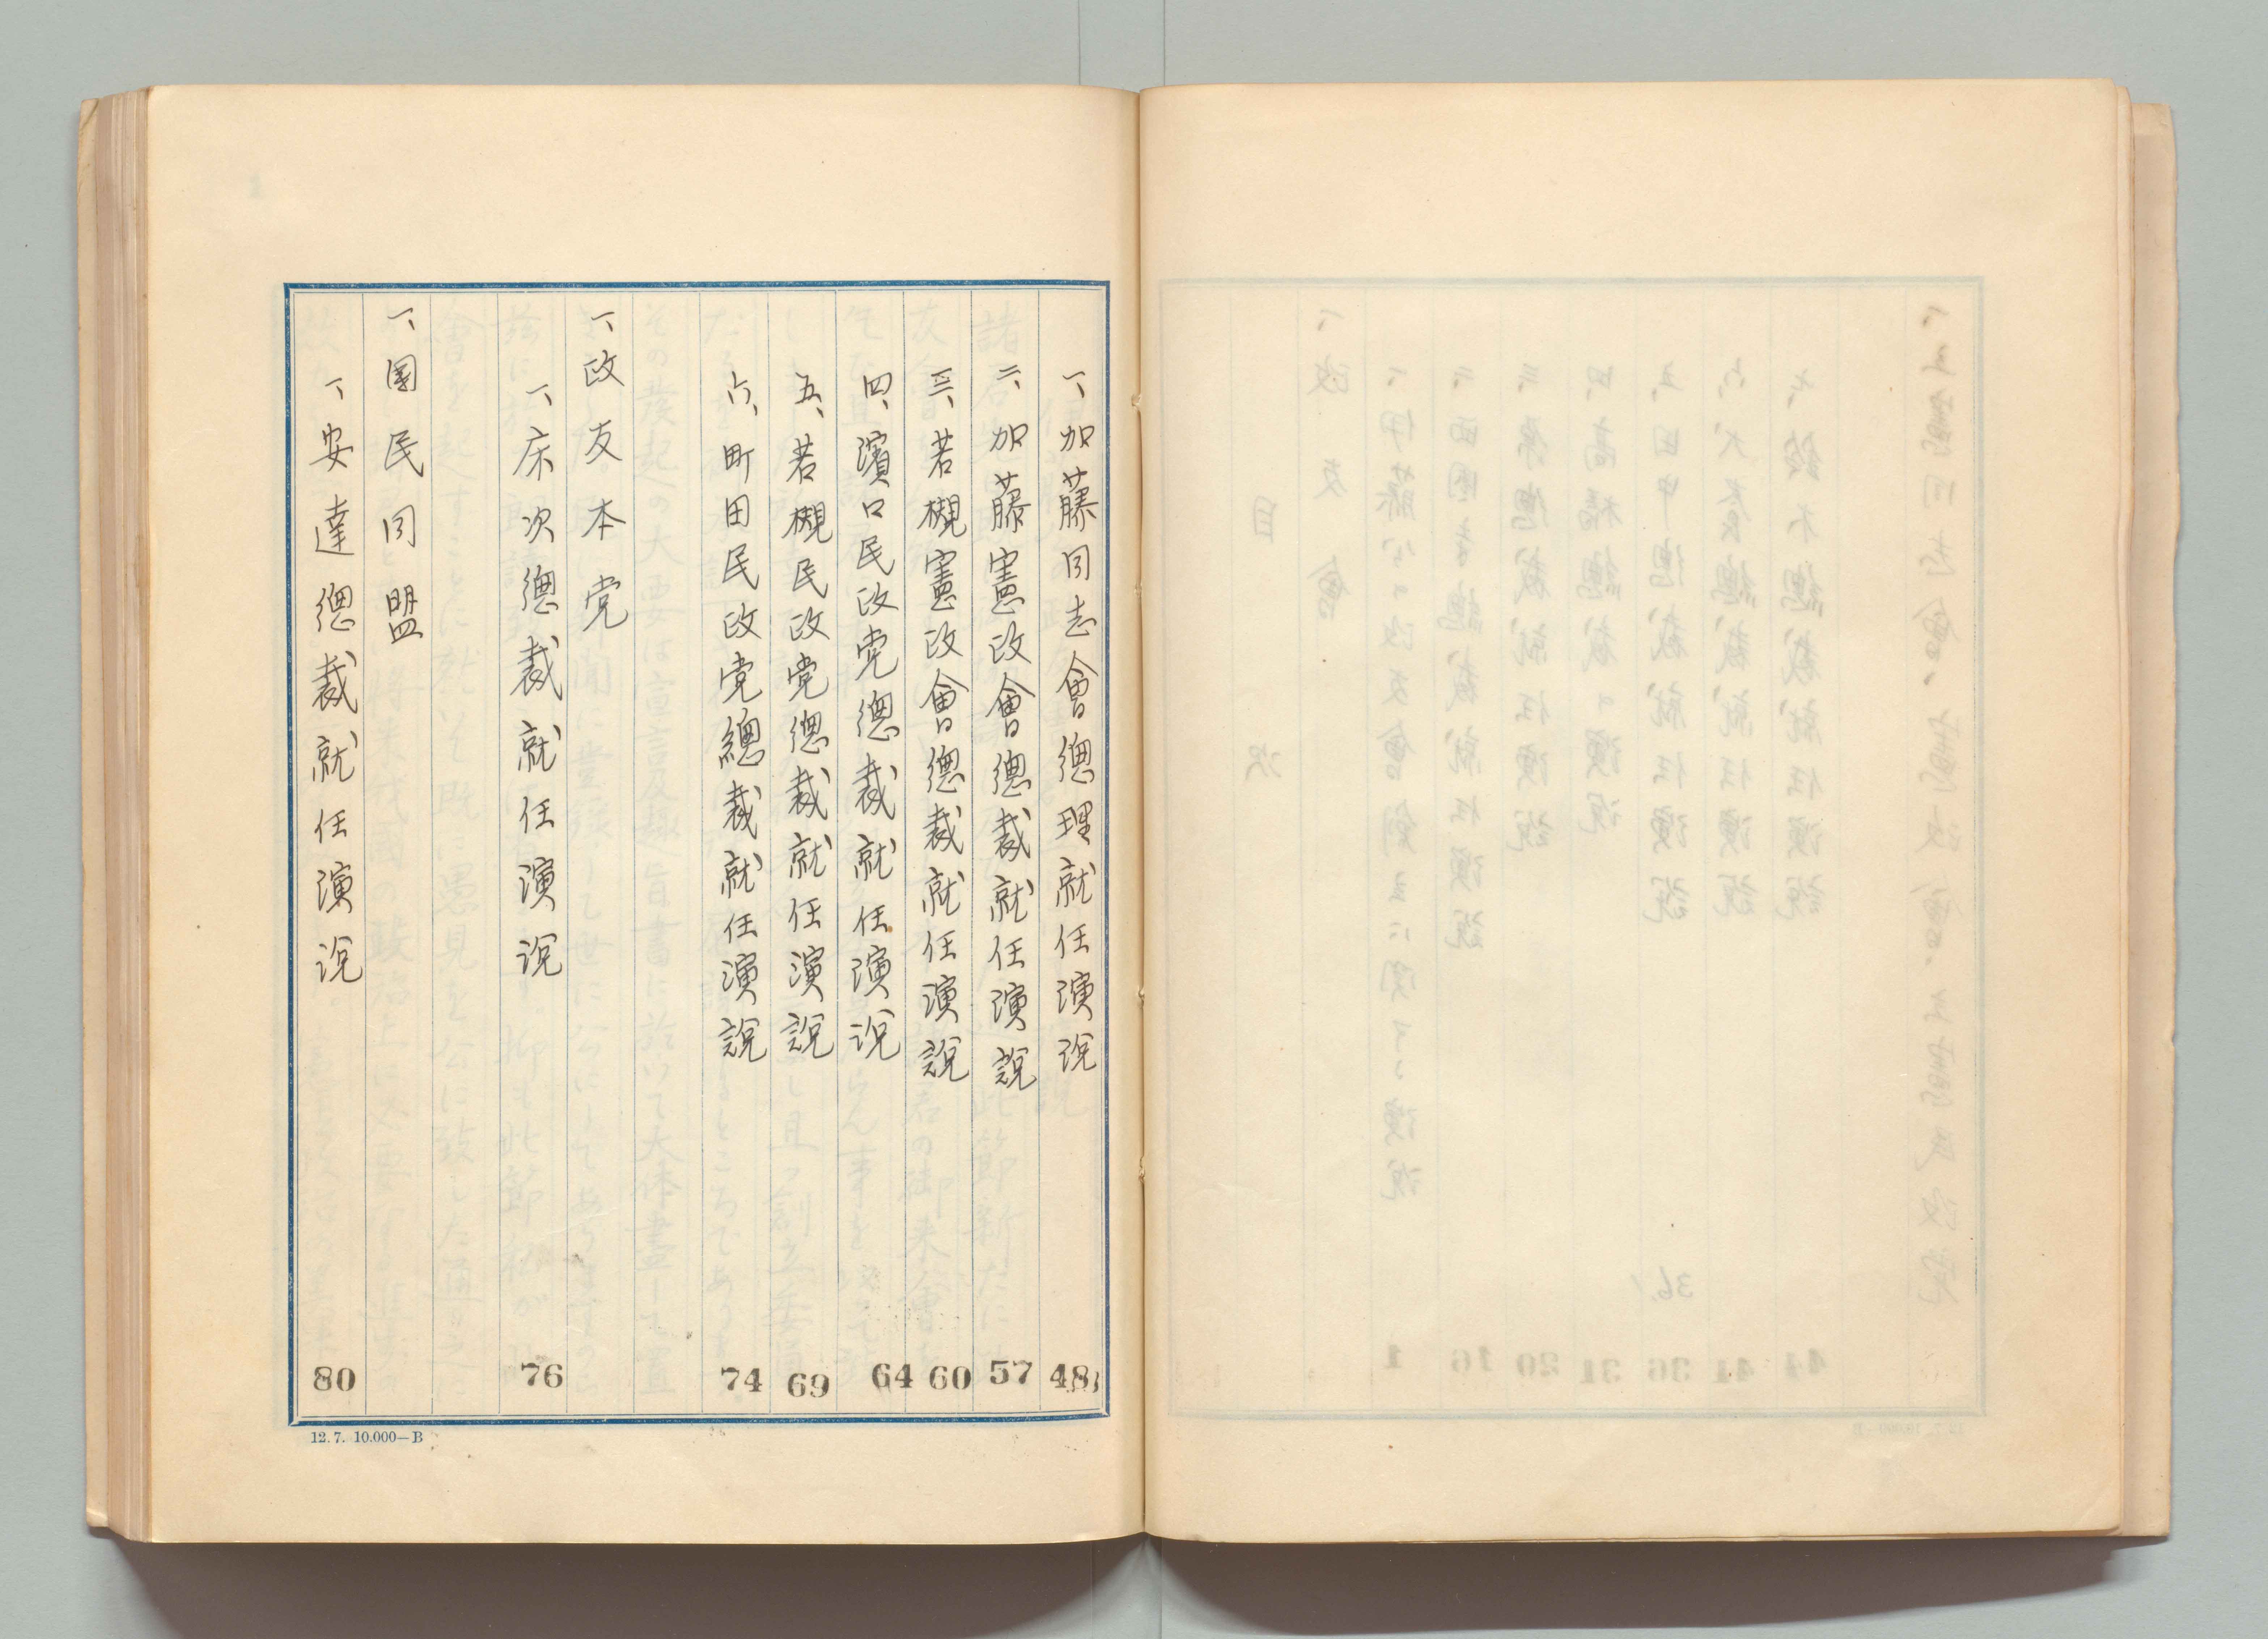 一、加藤同志會總理就任演説 48
二、加藤憲政會總裁就任演説 57
三、若槻憲政會總裁就任演説 60
四、濱口民政党總裁就任演説 64
五、若槻民政党總裁就任演説 69
六、町田民政党總裁就任演説 74
一、政友本党
一、床次總裁就任演説 76
一、國民同盟
一、安達總裁就任演説 80
12.7. 10.000—B